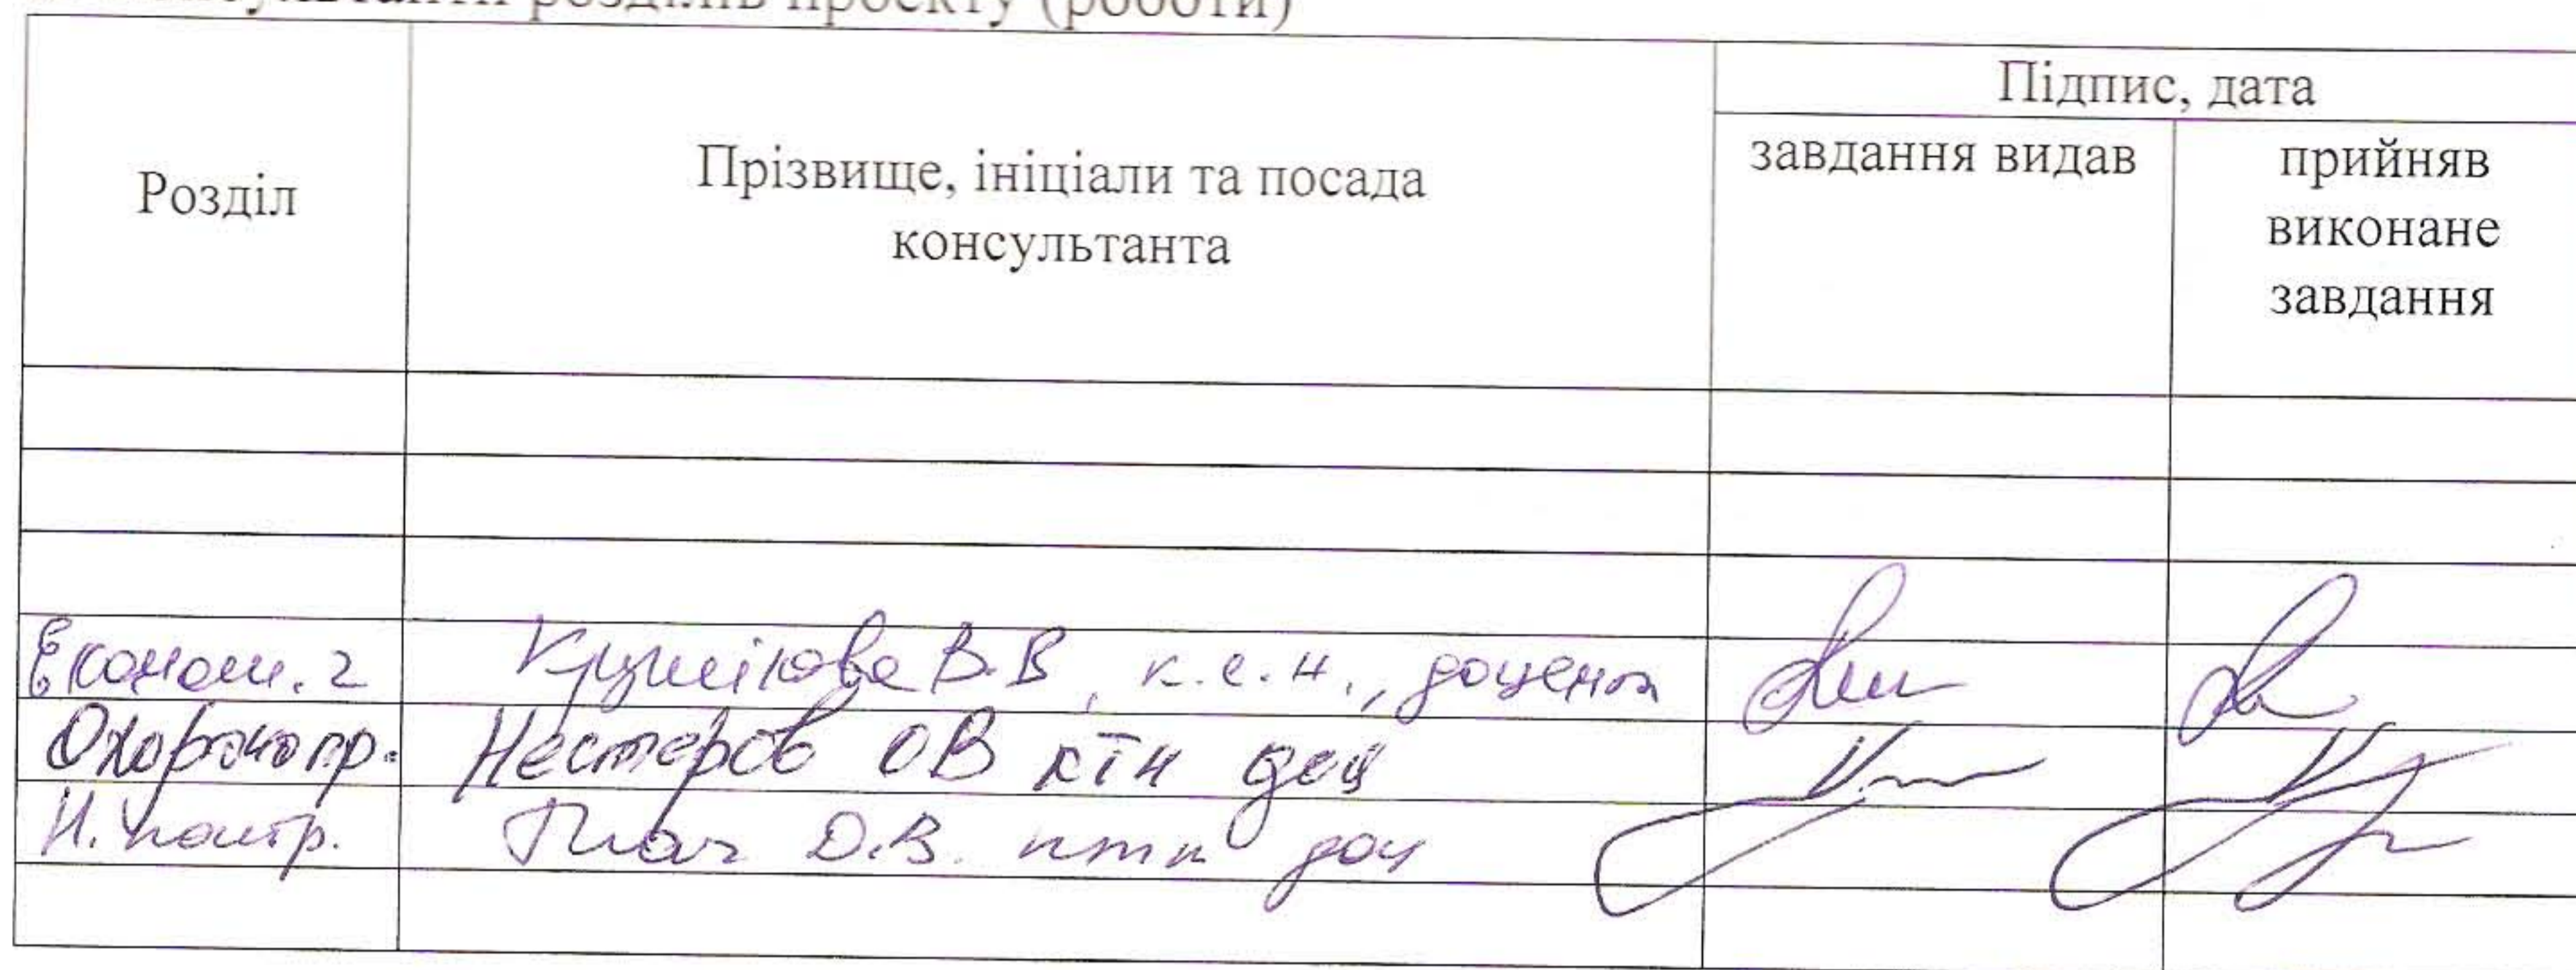 розділів проекту (роботи)
Розділ
Прізвище, ініціали та посада
консультанта
Підпис, дата
завдання видав
прийняв
виконане
завдання
Економ. ч В.В, к.е.н., доцент
Охорона пр. Нестеров ОВ ктн доц
Н. контр. Ткач Д.В. ктн доц